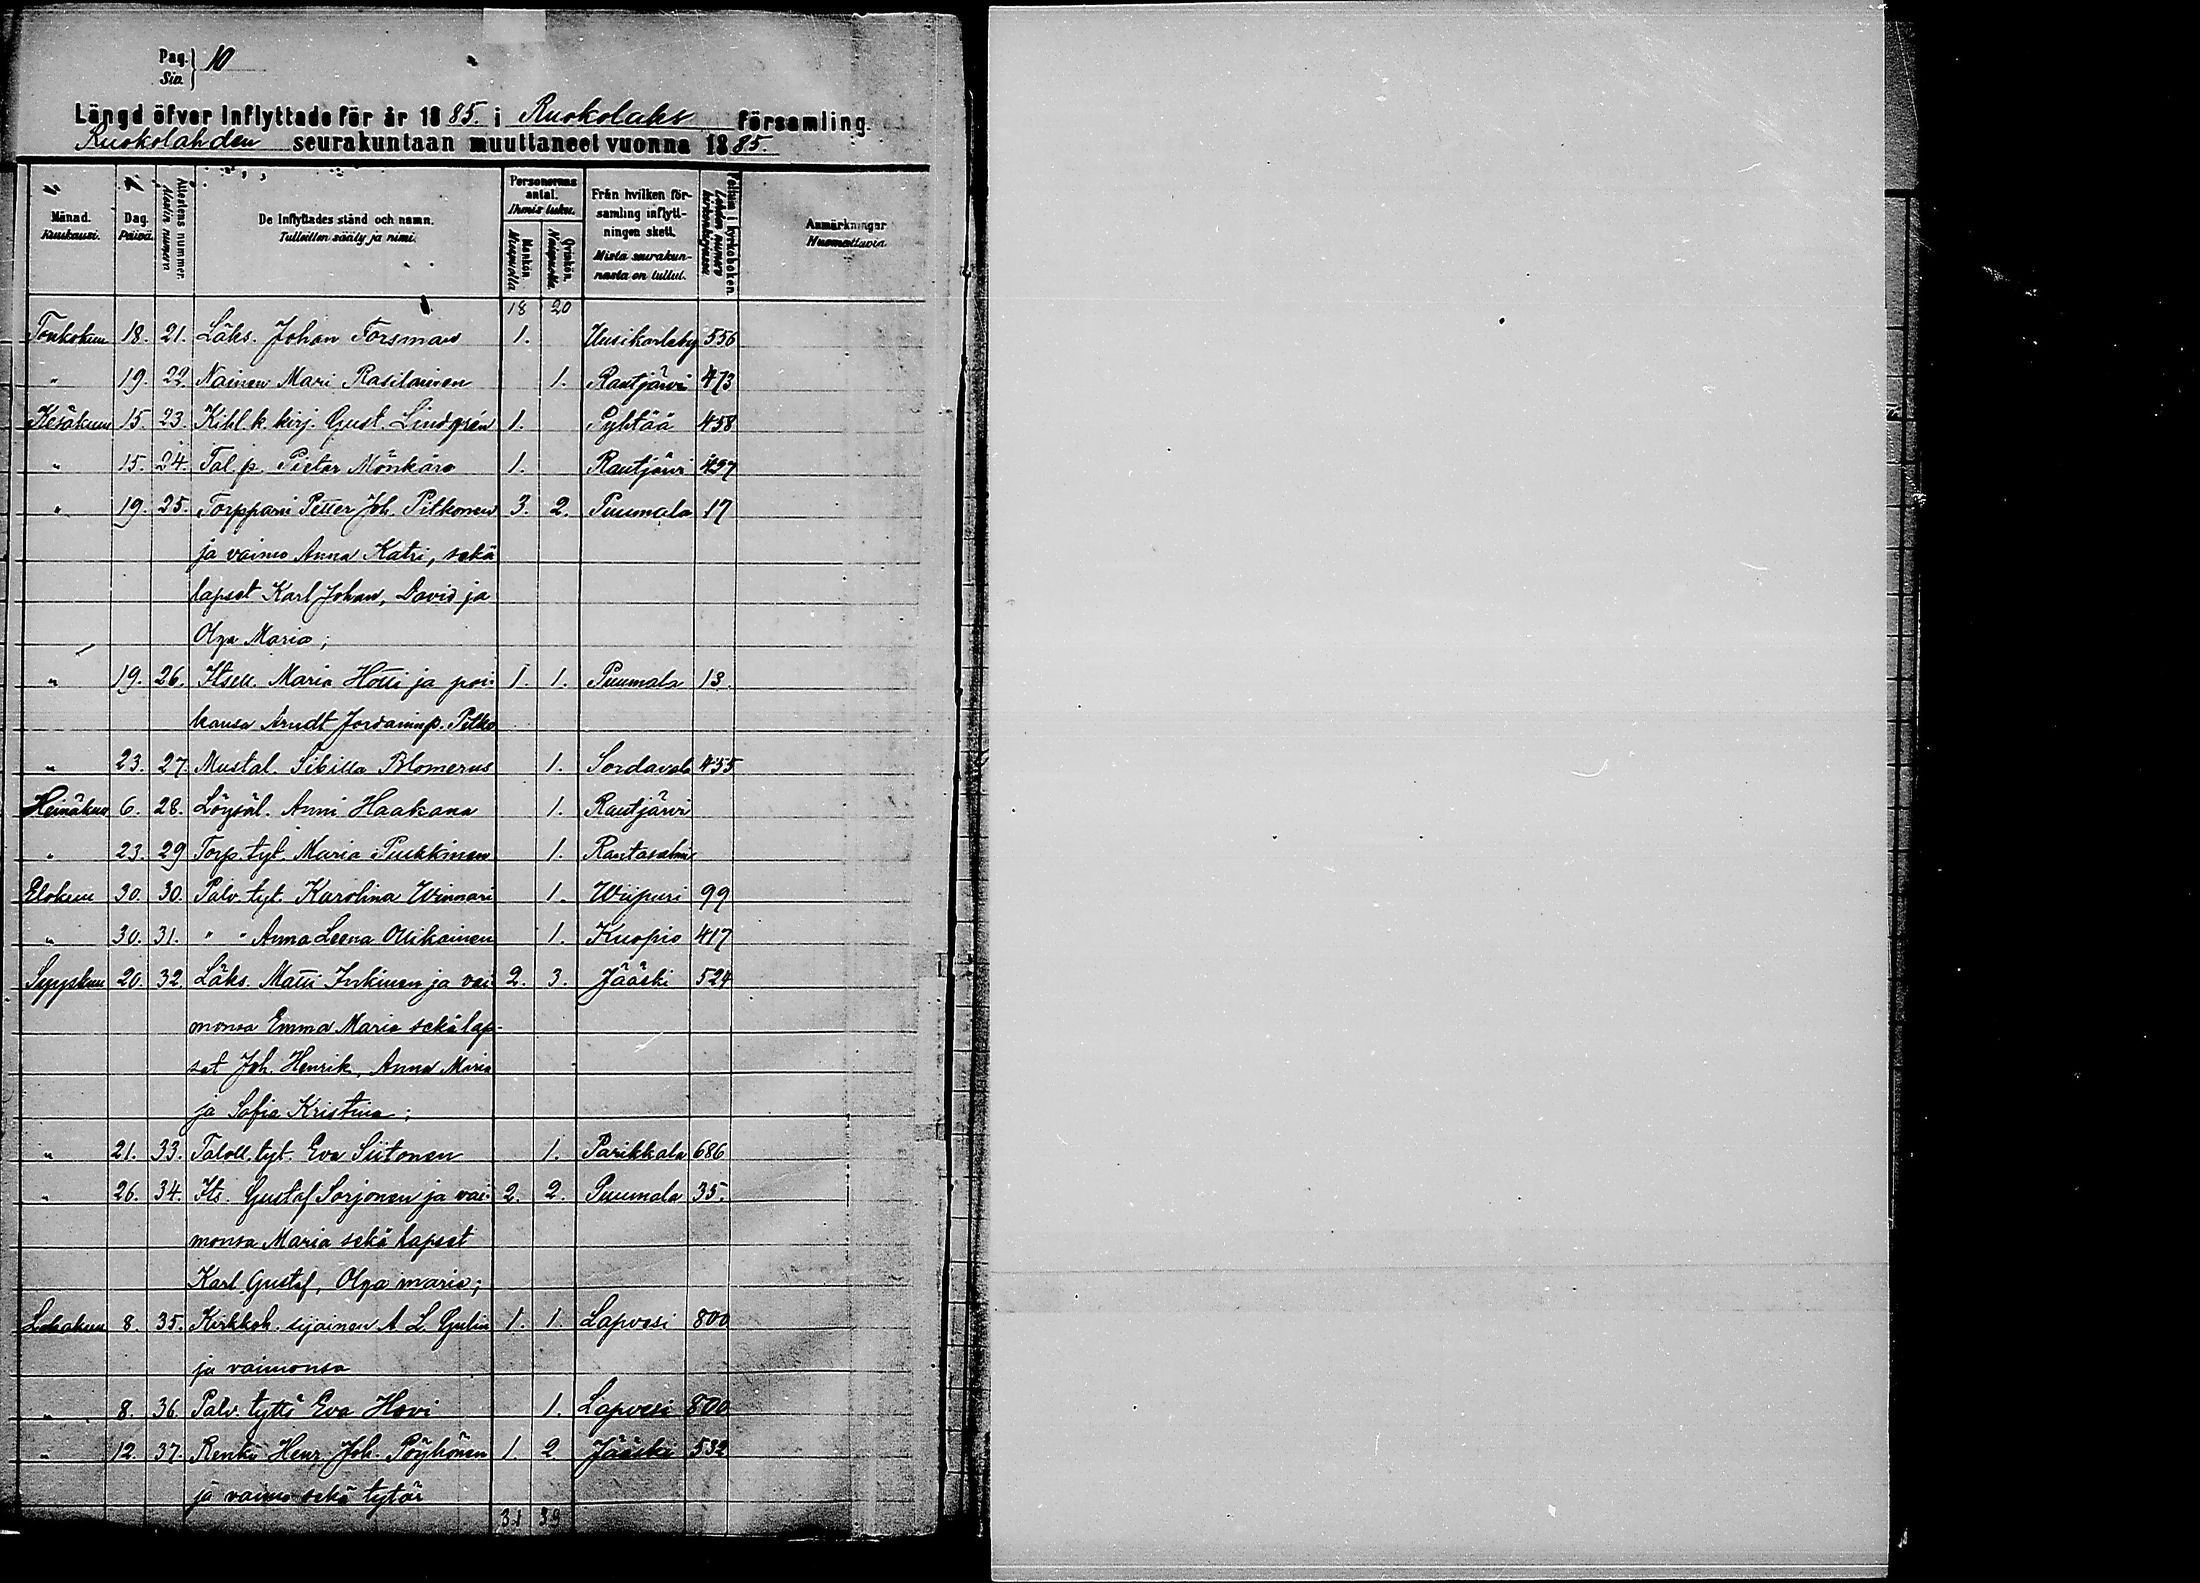 Pag. } 10
Siv.
Längd öfver Inflyttade för år 1885. i Ruokolaks församling.
Ruokolahden seurakuntaan muuttaneet vuonna 1885.
Månad. Kuukausi. Dag. Päivä. Attestens nummer. Alestin numero De Inflyttades stånd och namn. Tulleitten sääty ja nimi. Personernas antal. Ihmis luku. Mankön. Miespuolia Qvinkön. Naispuolia. Från hvilken församling inflyttningen skett. Mista seurakunnasta on tullut. Pagina i kyrkoboken. Lehden numero kirkonkirjassa Anmärkningar Muomattavia
18 20
Toukokuu 18. 21. Läks. Johan Forsman 1. Uusikarleby 556
" 19. 22 Nainen Mari Rasilainen 1. Rautjärvi 473
Kesäkuu 15. 23. Kihl. k. kirj. Gust. Lindgrén 1. Pyhtää 458
" 15. 24. Tal. p. Pieter Mönkäre 1. Rautjärvi 497
" 19. 25. Torppari Petter Joh. Pitkonen 3. 2. Puumala 17
ja vaimo Anna Katri, sekä
lapset Karl Johan, David ja
Olga Maria;
" 19. 26. Itsell. Maria Hotti ja poi- 1. 1. Puumala 13.
kansa Arndt Jordaninp. Pitko
" 23. 27. Mustal. Sibilla Blomerus 1. Sordavala 455
Heinäkuu 6. 28. Löysäl. Anni Haakana 1. Rautjärvi
" 23. 29 Torp. tyt. Maria Puukkinen 1. Rantasalmi
Elokuu 30. 30. Palv. tyt. Karolina Winnari 1. Wiipuri 99
" 30. 31. " " Anna Leena Ollikainen 1. Kuopio 417
Syyskuu 20. 32. Läks. Matti Inkinen ja vai- 2. 3. Jääski 524
monsa Emma Maria sekä lap-
set Joh. Henrik, Anna Maria
ja Sofia Kristina;
" 21. 33. Taloll. tyt. Eva Siitonen 1. Parikkala 686
" 26. 34. Its. Gustaf Sorjonen ja vai- 2. 2. Puumala 35.
monsa Maria sekä lapset
Karl Gustaf, Olga maria;
Lokakuu 8. 35. Kirkkoh. sijainen A. L. Gulin 1. 1. Lapvesi 800
ja vaimonsa
" 8. 36. Palv. tyttö Eva Hovi 1. Lapvesi 800
" 12. 37. Renki Henr. Joh. Pöyhönen 1. 2 Jääski 532
ja vaimo sekä tytär
31 39